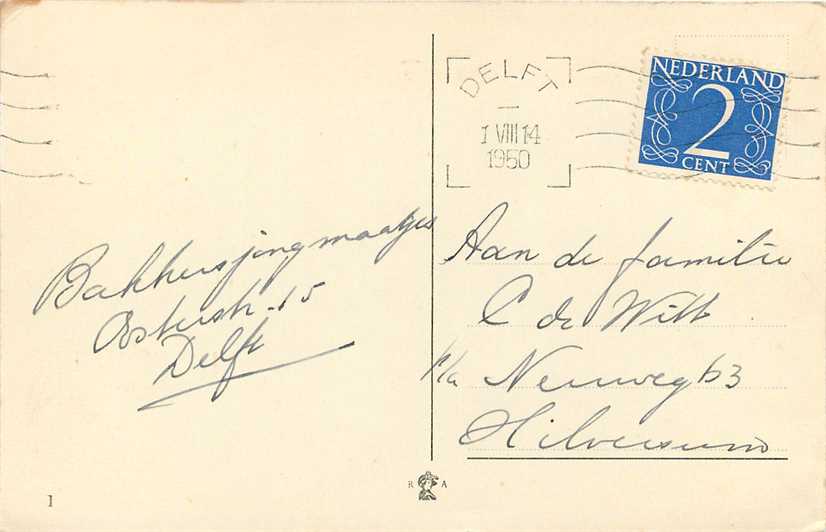 DELFT
1 VIII 14
1950
NEDERLAND
2
CENT
Bakkersjongmaatjes
Oosterstr. 15
Delft
Aan de familie
C de Witt
p/a Neuweg 63
Hilversum
R A
1